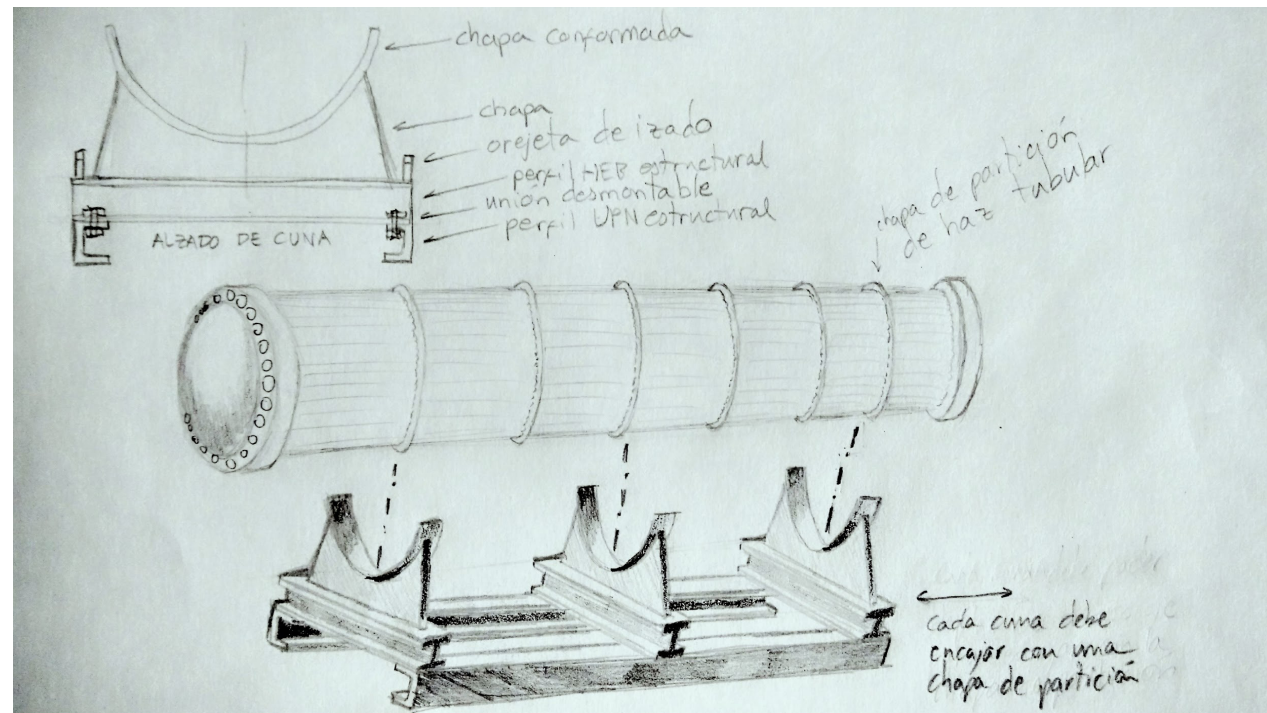 chapa conformada
chapa
orejeta de izado
perfil HEB estructural
unión desmontable
perfil UPN estructural
ALZADO DE CUNA
chapa de partición
de haz tubular
cada cuna debe
encajar con una
chapa de partición